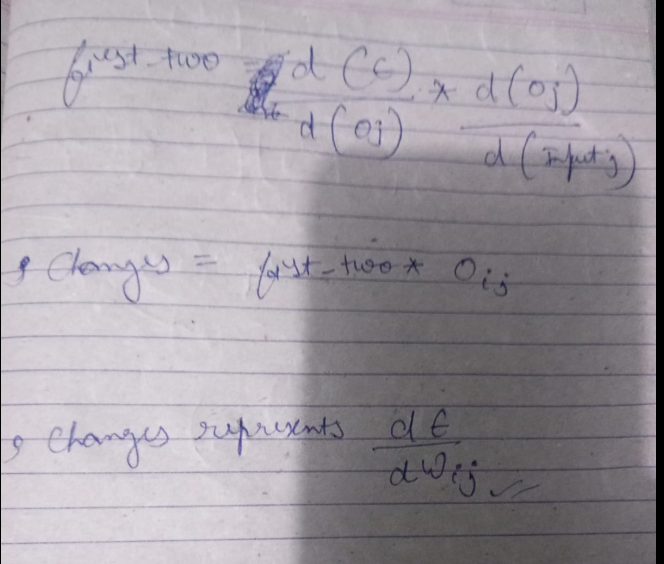 first-two = d(E) * d(Oj)
d(Oj) d(inputj)
changes = first-two * Oij
changes represents dE
dWij